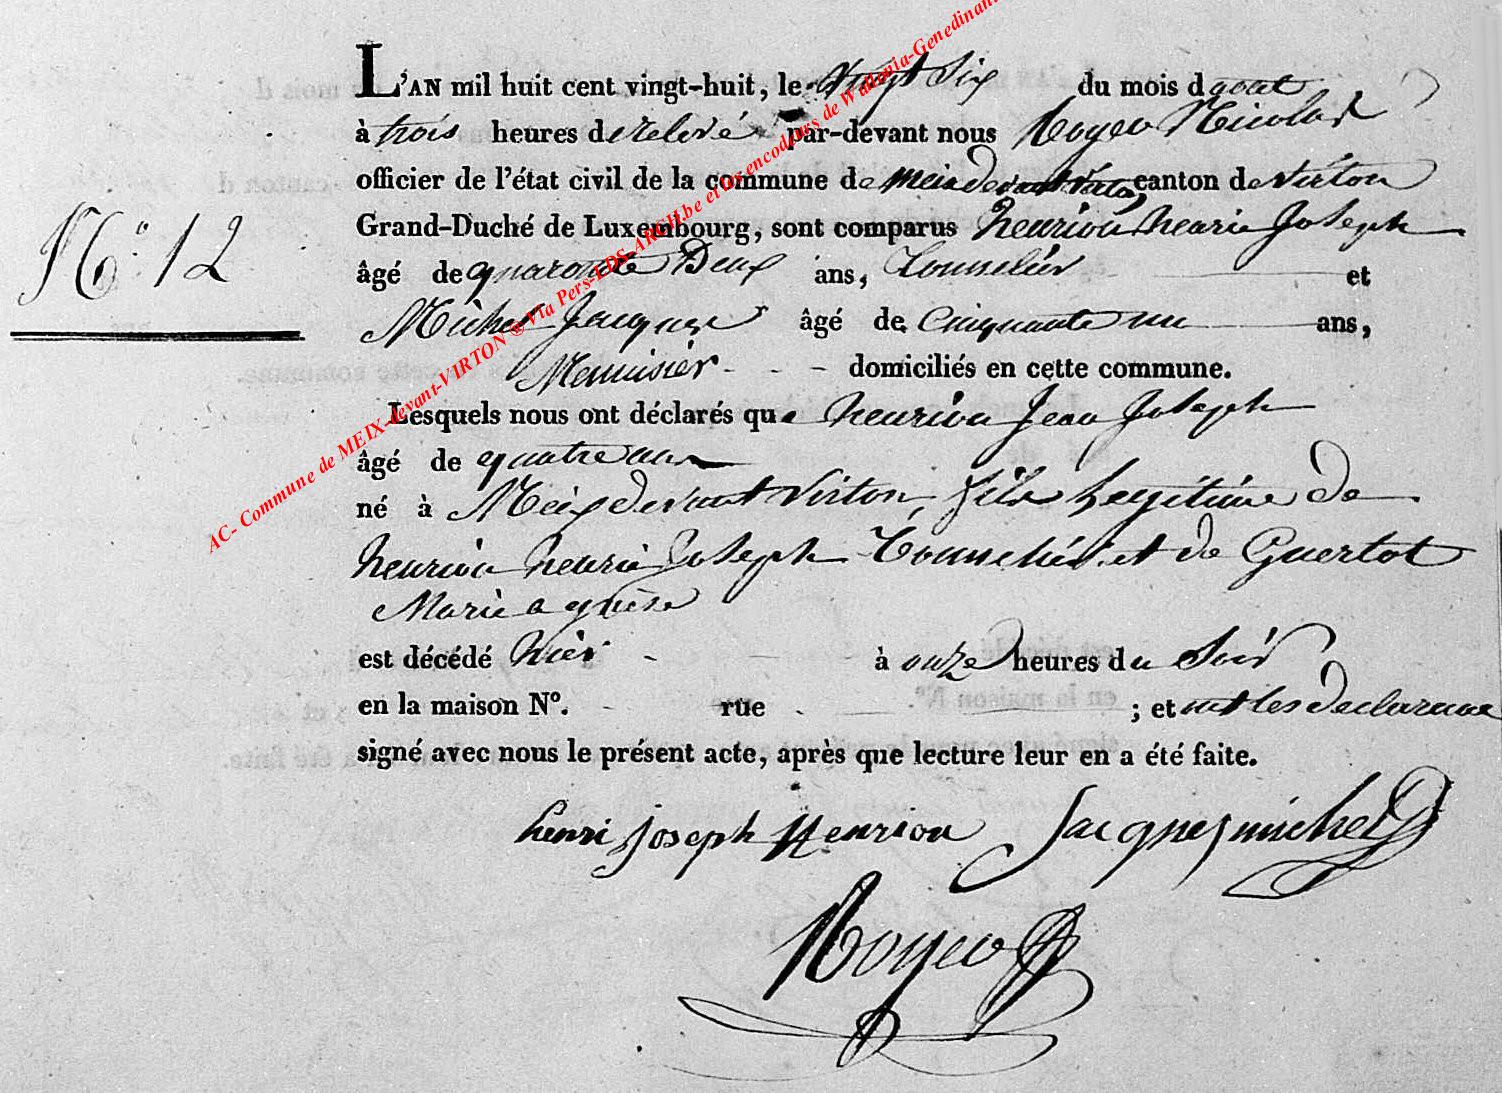 L'AN mil huit cent vingt-huit, le vingt Six du mois d aout
à trois heures de relevé par-devant nous Royer Nicolas
officier de l'état civil de la commune de meix devant virton, canton de virton
Grand-Duché de Luxembourg, sont comparus henrion henrie Joseph
N° 12
âgé de quaronte Deux ans, Tonnelier et
Michel Jacques âgé de Cinquante un ans,
Menuisier domiciliés en cette commune.
Lesquels nous ont déclarés que henrion Jean Joseph
âgé de quatre ans
né à Meix devant virton, fils Legitime de
henrion henrie Joseph Tonnelier et de Guertot
Marie agnèse
est décédé hier à onze heures du Soir
en la maison N°. rue ; et ont les declarans
signé avec nous le présent acte, après que lecture leur en a été faite.
henri joseph Henrion Jacques michel
Royer
AC- Commune de MEIX-devant-VIRTON ® Via Pers-LDS-ARCH.be et les encodeurs de Wallonia-Genedinant